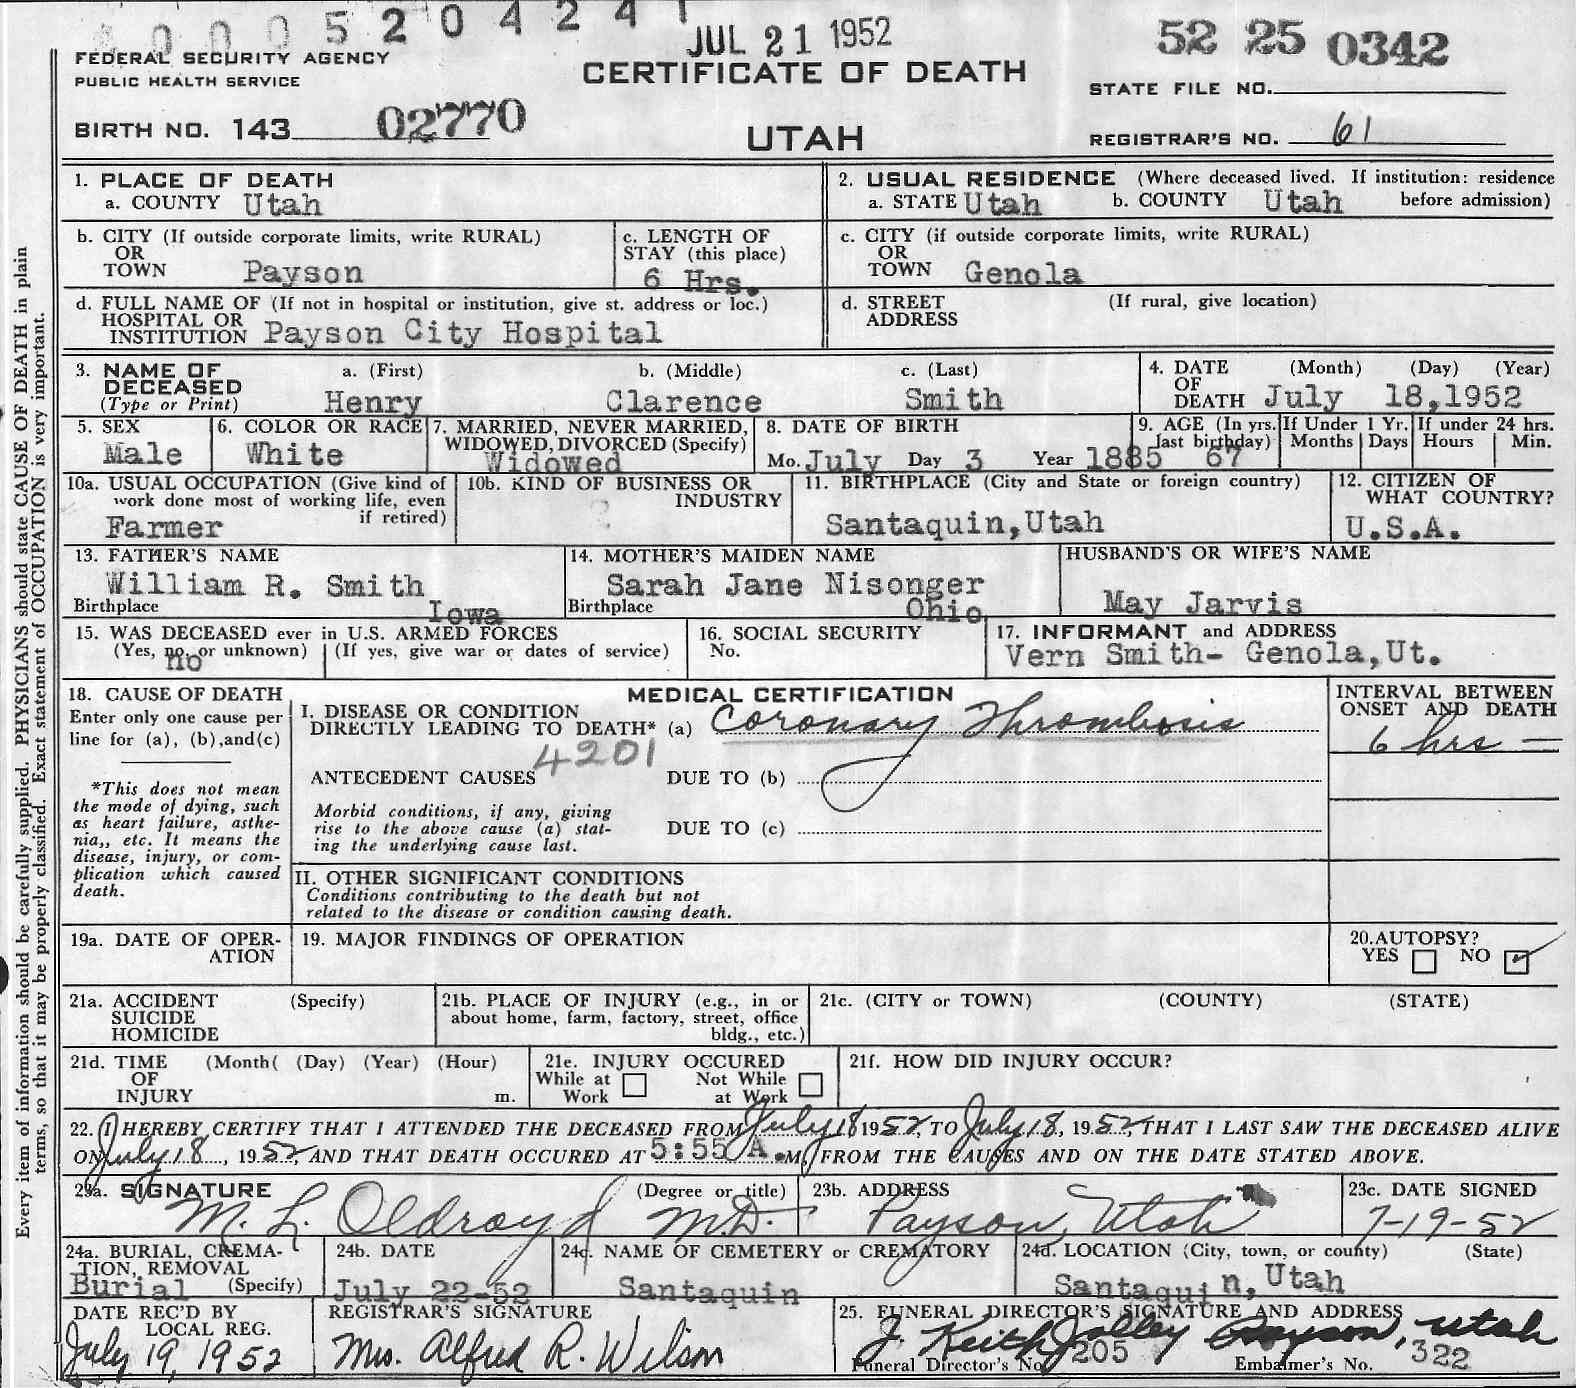 0000520424 1
JUL 21 1952
52 25 0342
FEDERAL SECURITY AGENCY
PUBLIC HEALTH SERVICE
CERTIFICATE OF DEATH
STATE FILE NO.
BIRTH NO. 143 02770
UTAH
REGISTRAR'S NO. 61
Every item of information should be carefully supplied. PHYSICIANS should state CAUSE OF DEATH in plain
terms, so that it may be properly classified. Exact statement of OCCUPATION is very important.
1. PLACE OF DEATH
a. COUNTY Utah
2. USUAL RESIDENCE (Where deceased lived. If institution: residence
a. STATE Utah b. COUNTY Utah before admission)
b. CITY (If outside corporate limits, write RURAL)
OR
TOWN Payson
c. LENGTH OF
STAY (this place)
6 Hrs.
c. CITY (if outside corporate limits, write RURAL)
OR
TOWN Genola
d. FULL NAME OF (If not in hospital or institution, give st. address or loc.)
HOSPITAL OR
INSTITUTION Payson City Hospital
d. STREET (If rural, give location)
ADDRESS
3. NAME OF DECEASED
(Type or Print)
a. (First) b. (Middle) c. (Last)
Henry Clarence Smith
4. DATE (Month) (Day) (Year)
OF
DEATH July 18,1952
5. SEX
Male
6. COLOR OR RACE
White
7. MARRIED, NEVER MARRIED,
WIDOWED, DIVORCED (Specify)
Widowed
8. DATE OF BIRTH
Mo. July Day 3 Year 1885
9. AGE (In yrs.
last birthday)
67
If Under 1 Yr.
Months Days
If under 24 hrs.
Hours Min.
10a. USUAL OCCUPATION (Give kind of
work done most of working life, even
if retired)
Farmer
10b. KIND OF BUSINESS OR
INDUSTRY
11. BIRTHPLACE (City and State or foreign country)
Santaquin,Utah
12. CITIZEN OF
WHAT COUNTRY?
U.S.A.
13. FATHER'S NAME
William R. Smith
Birthplace Iowa
14. MOTHER'S MAIDEN NAME
Sarah Jane Nisonger
Birthplace Ohio
HUSBAND'S OR WIFE'S NAME
May Jarvis
15. WAS DECEASED ever in U.S. ARMED FORCES
(Yes, no, or unknown) (If yes, give war or dates of service)
no
16. SOCIAL SECURITY
No.
17. INFORMANT and ADDRESS
Vern Smith- Genola,Ut.
18. CAUSE OF DEATH
Enter only one cause per
line for (a), (b),and(c)
*This does not mean
the mode of dying, such
as heart failure, asthe-
nia,, etc. It means the
disease, injury, or com-
plication which caused
death.
MEDICAL CERTIFICATION
I. DISEASE OR CONDITION
DIRECTLY LEADING TO DEATH* (a) Coronary Thrombosis
4201
ANTECEDENT CAUSES DUE TO (b)
Morbid conditions, if any, giving
rise to the above cause (a) stat-
ing the underlying cause last.
DUE TO (c)
II. OTHER SIGNIFICANT CONDITIONS
Conditions contributing to the death but not
related to the disease or condition causing death.
INTERVAL BETWEEN
ONSET AND DEATH
6 hrs —
19a. DATE OF OPER-
ATION
19. MAJOR FINDINGS OF OPERATION
20.AUTOPSY?
YES NO
21a. ACCIDENT (Specify)
SUICIDE
HOMICIDE
21b. PLACE OF INJURY (e.g., in or
about home, farm, factory, street, office
bldg., etc.)
21c. (CITY or TOWN) (COUNTY) (STATE)
21d. TIME (Month( (Day) (Year) (Hour)
OF
INJURY m.
21e. INJURY OCCURED
While at Work Not While at Work
21f. HOW DID INJURY OCCUR?
22. I HEREBY CERTIFY THAT I ATTENDED THE DECEASED FROM July 18 1952, TO July 18, 1952, THAT I LAST SAW THE DECEASED ALIVE
ON July 18, 1952, AND THAT DEATH OCCURED AT 5:55 A.M, FROM THE CAUSES AND ON THE DATE STATED ABOVE.
23a. SIGNATURE (Degree or title)
M. L. Oldroyd M.D.
23b. ADDRESS
Payson, Utah
23c. DATE SIGNED
7-19-52
24a. BURIAL, CREMA-
TION, REMOVAL
Burial (Specify)
24b. DATE
July 22-52
24c. NAME OF CEMETERY or CREMATORY
Santaquin
24d. LOCATION (City, town, or county) (State)
Santaquin, Utah
DATE REC'D BY
LOCAL REG.
July 19, 1952
REGISTRAR'S SIGNATURE
Mrs. Alfred R. Wilson
25. FUNERAL DIRECTOR'S SIGNATURE AND ADDRESS
J. Keith Jolley Payson, Utah
Funeral Director's No. 205 Embalmer's No. 322